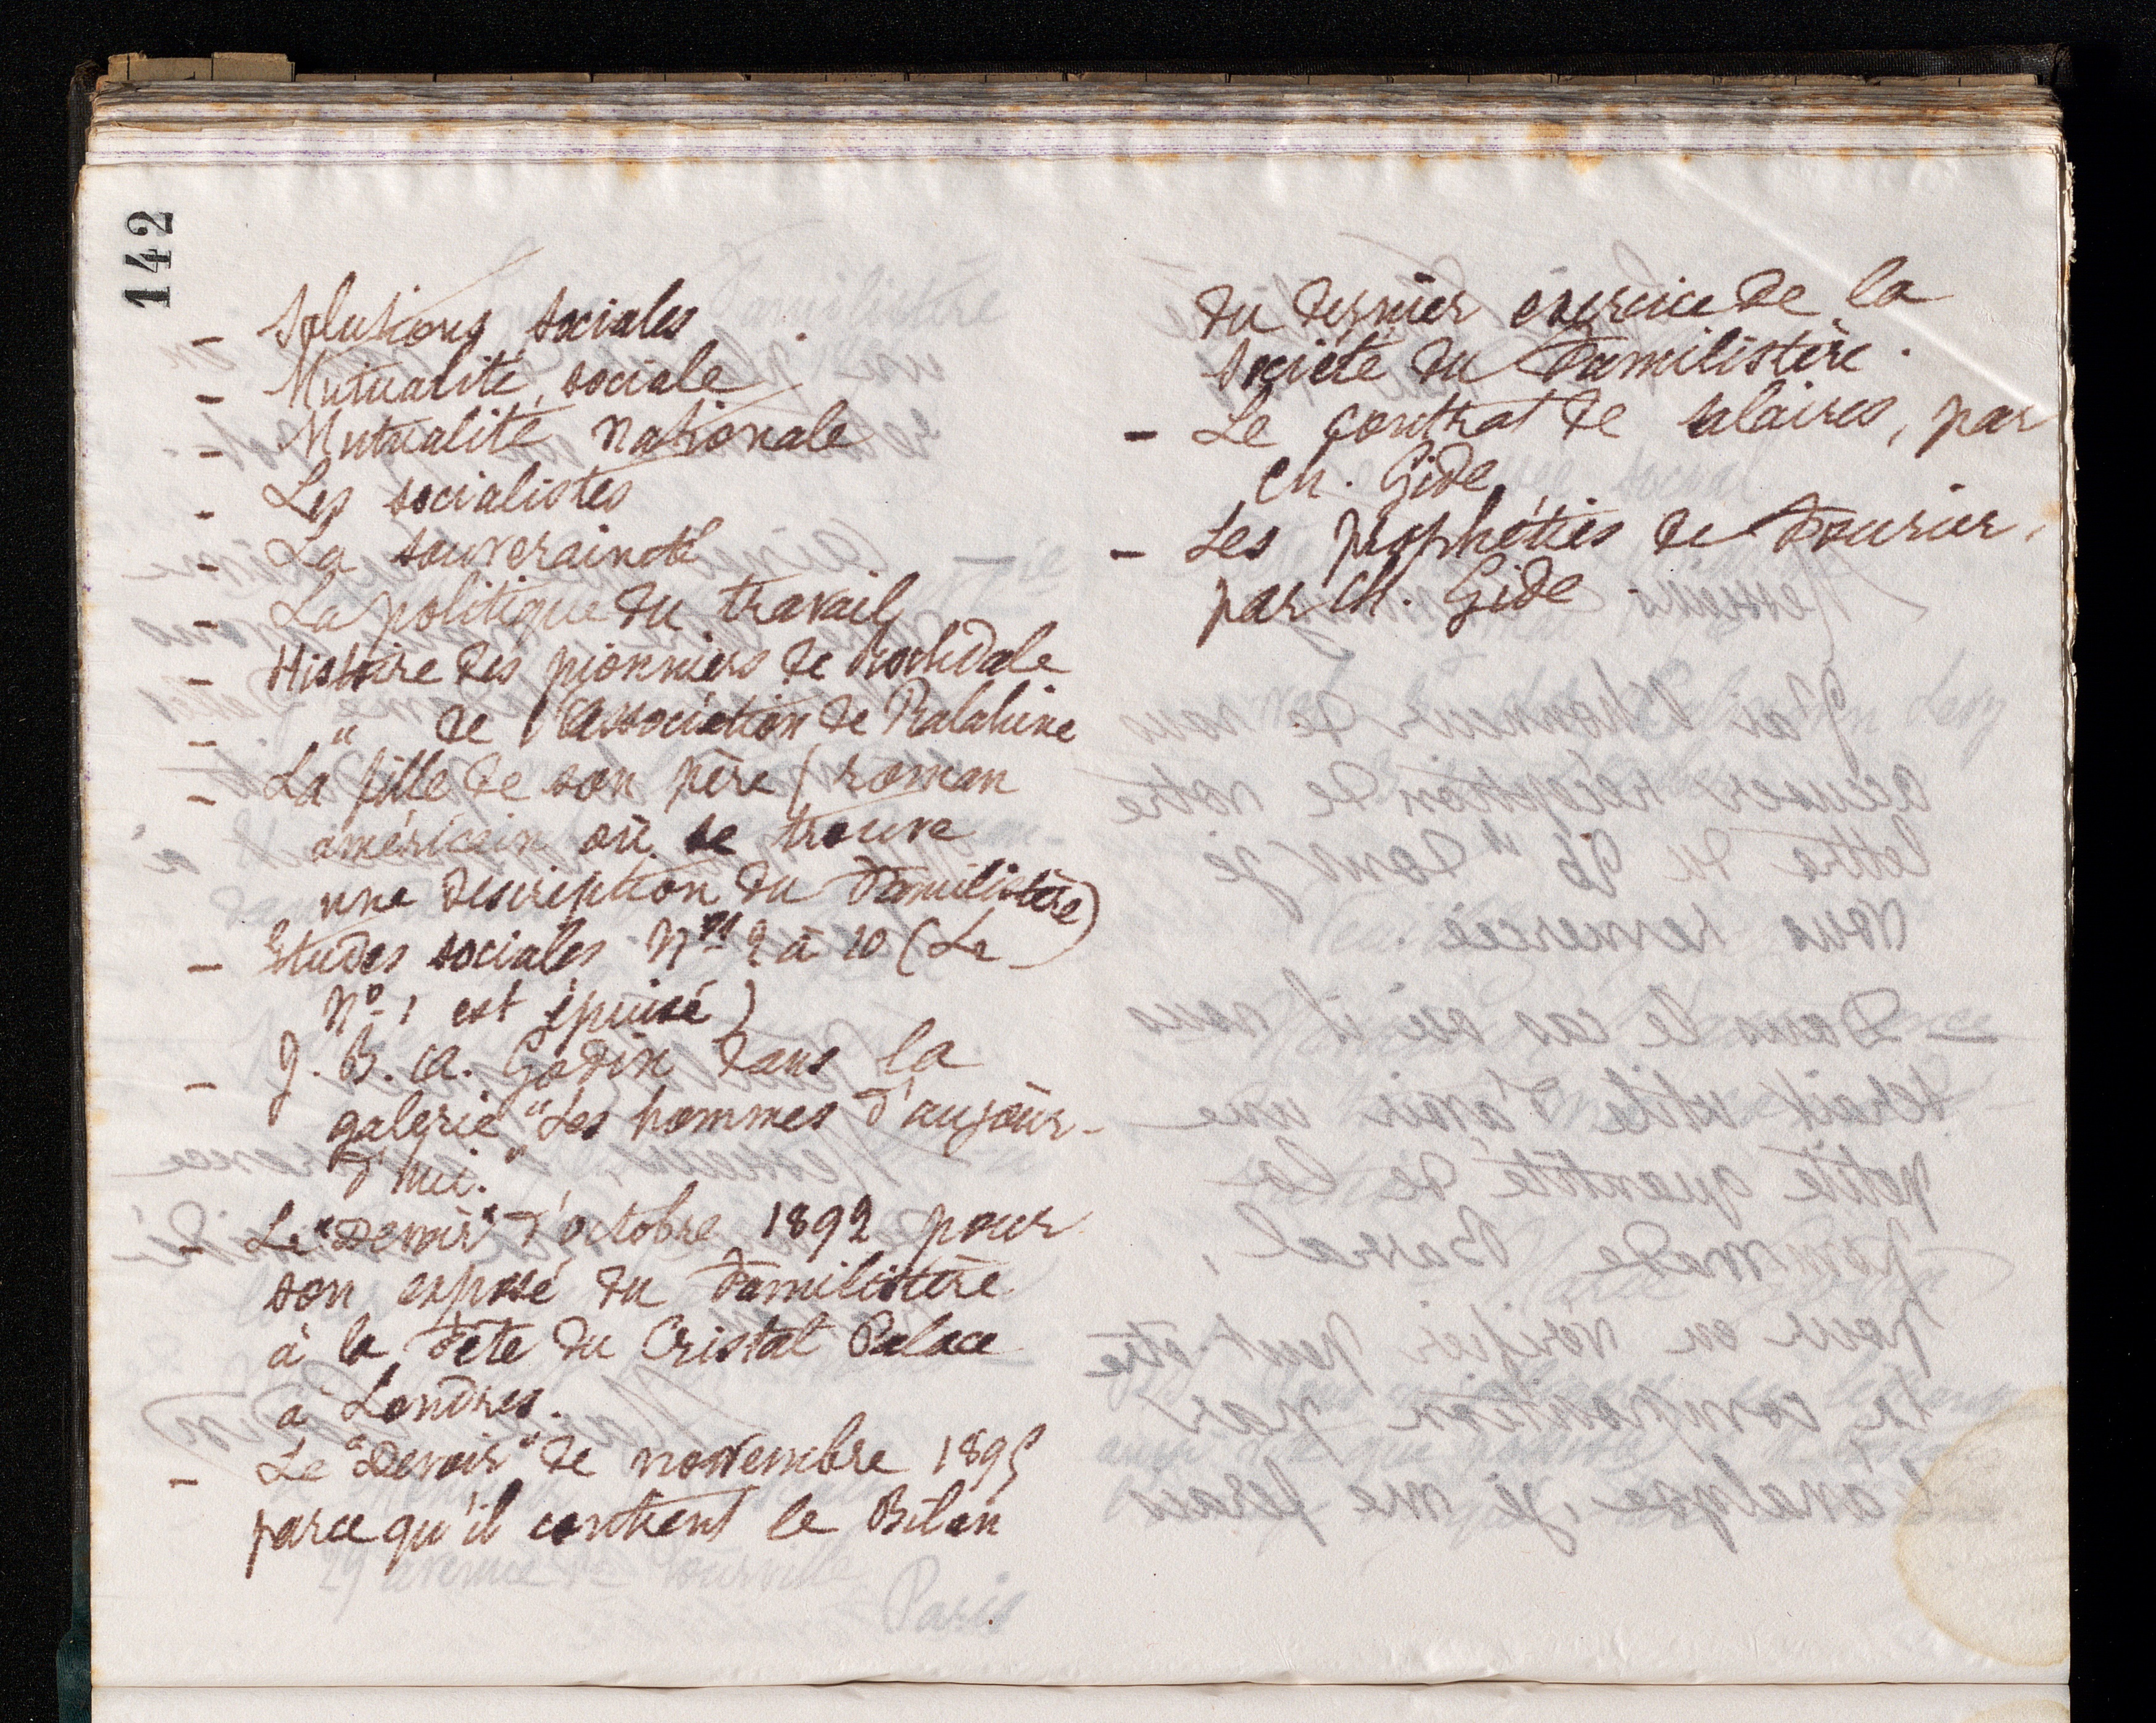 142
- Solutions sociales
- Mutualité sociale
- Mutualité nationale
- Les socialistes
- La souveraineté
- La politique du travail
- Histoire des pionniers de Rochdale
- " de l'Association de Ralahine
- La fille de son père (roman
américain où se trouve
une description du Familistère)
- Etudes sociales Nos 2 à 10 (Le
No 1 est épuisé)
- J. B. A. Godin dans la
galerie "Les hommes d'aujour-
d'hui."
- Le "Devoir" d'octobre 1892 pour
son exposé du Familistère
à la Fête du Cristal Palace
à Londres.
- Le "Devoir" de novembre 1895
parce qu'il contient le Bilan
du dernier exercice de la
Société du Familistère.
- Le contrat de salaires, par
Ch. Gide
- Les prophéties de Fourier,
par Ch. Gide.